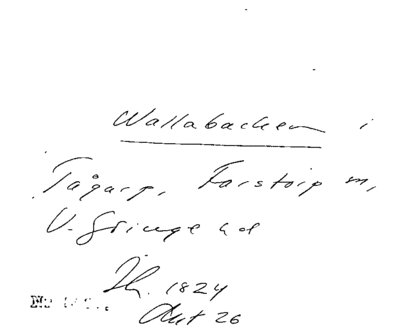 Wallabacken i
Tågarp, Farstorp m,
V. Göinge hd
Jb. 1824
Akt 26